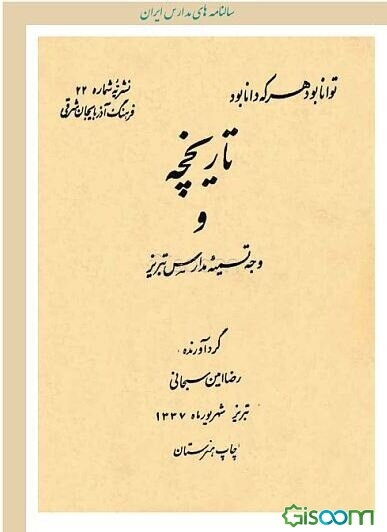 سالنامه های مدارس ایران
توانا بود هر که دانا بود
نشریه شماره ۲۲
فرهنگ آذربایجان شرقی
تاریخچه
و
وجه تسمیه مدارس تبریز
گردآورنده:
رضا امین سبحانی
تبریز شهریور ماه ۱۳۳۷
چاپ هنرستان
Gisoom